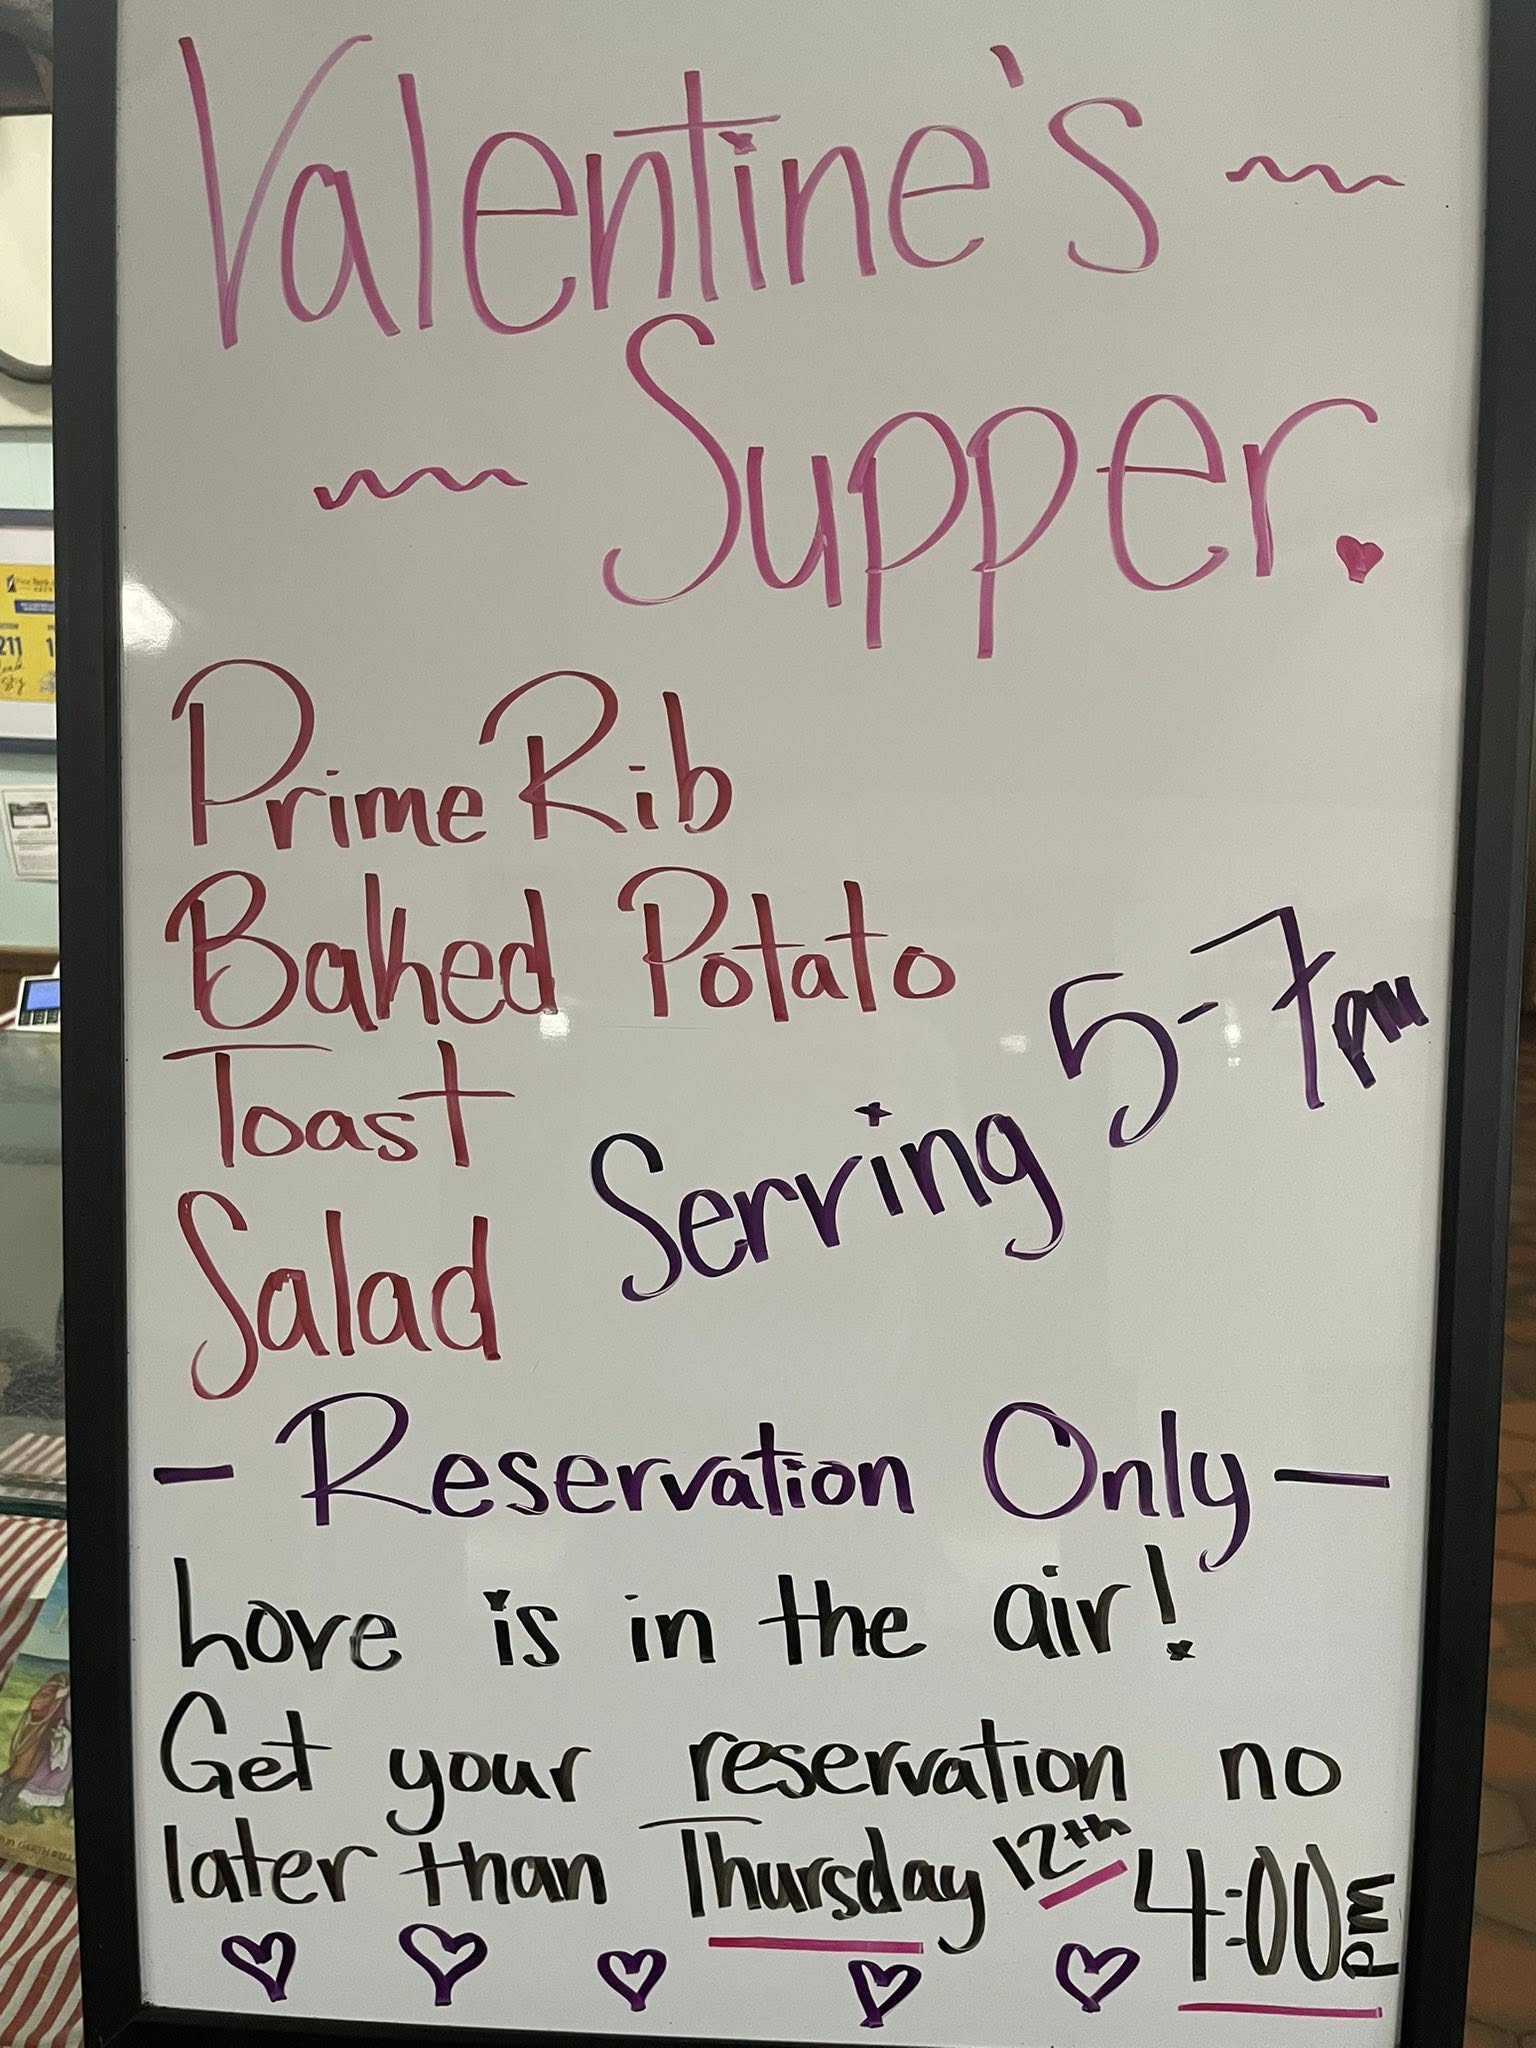 Valentine's ~
~ Supper.
Prime Rib
Baked Potato
Toast
Salad
Serving 5-7pm
- Reservation Only -
Love is in the air!
Get your reservation no
later than Thursday 12th 4:00pm
211